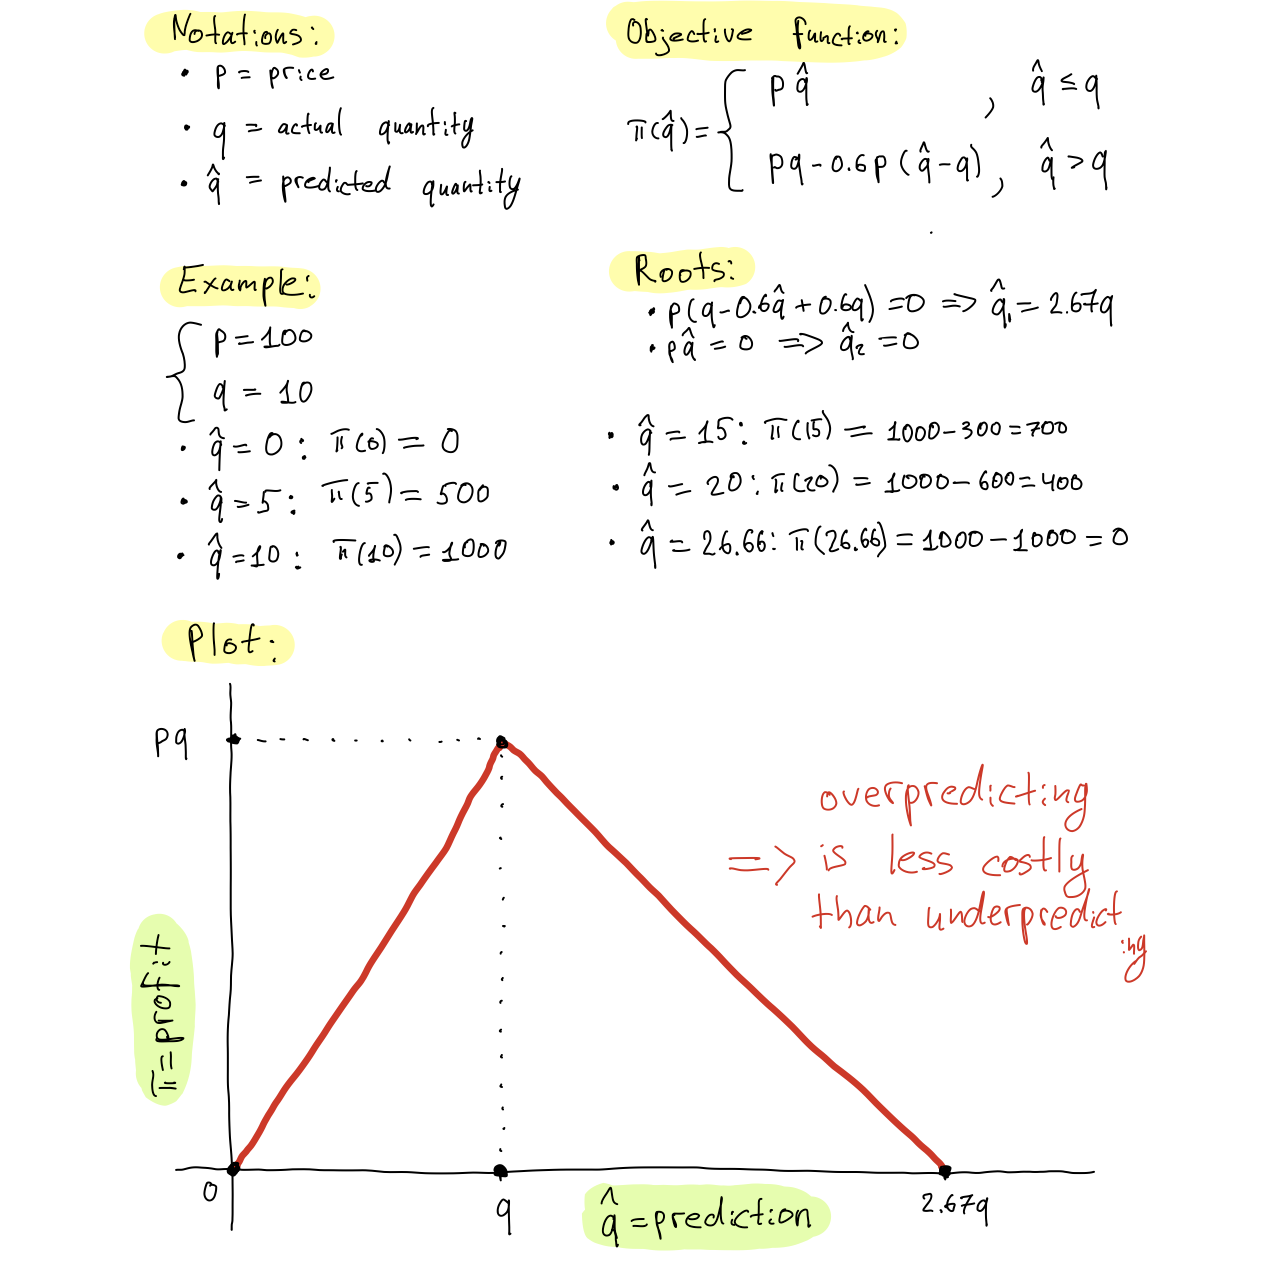 Notations:
• p = price
• q = actual quantity
• q̂ = predicted quantity
Objective function:
π(q̂) = { p q̂ , q̂ ≤ q
pq - 0.6p (q̂ - q) , q̂ > q
Example:
{ p = 100
q = 10
• q̂ = 0 : π(0) = 0
• q̂ = 5 : π(5) = 500
• q̂ = 10 : π(10) = 1000
Roots:
• p(q - 0.6q̂ + 0.6q) = 0 => q̂₁ = 2.67q
• pq̂ = 0 => q̂₂ = 0
• q̂ = 15 : π(15) = 1000 - 300 = 700
• q̂ = 20 : π(20) = 1000 - 600 = 400
• q̂ = 26.66 : π(26.66) = 1000 - 1000 = 0
Plot:
pq
overpredicting
=> is less costly
than underpredict
ing
π = profit
0
q
q̂ = prediction
2.67q